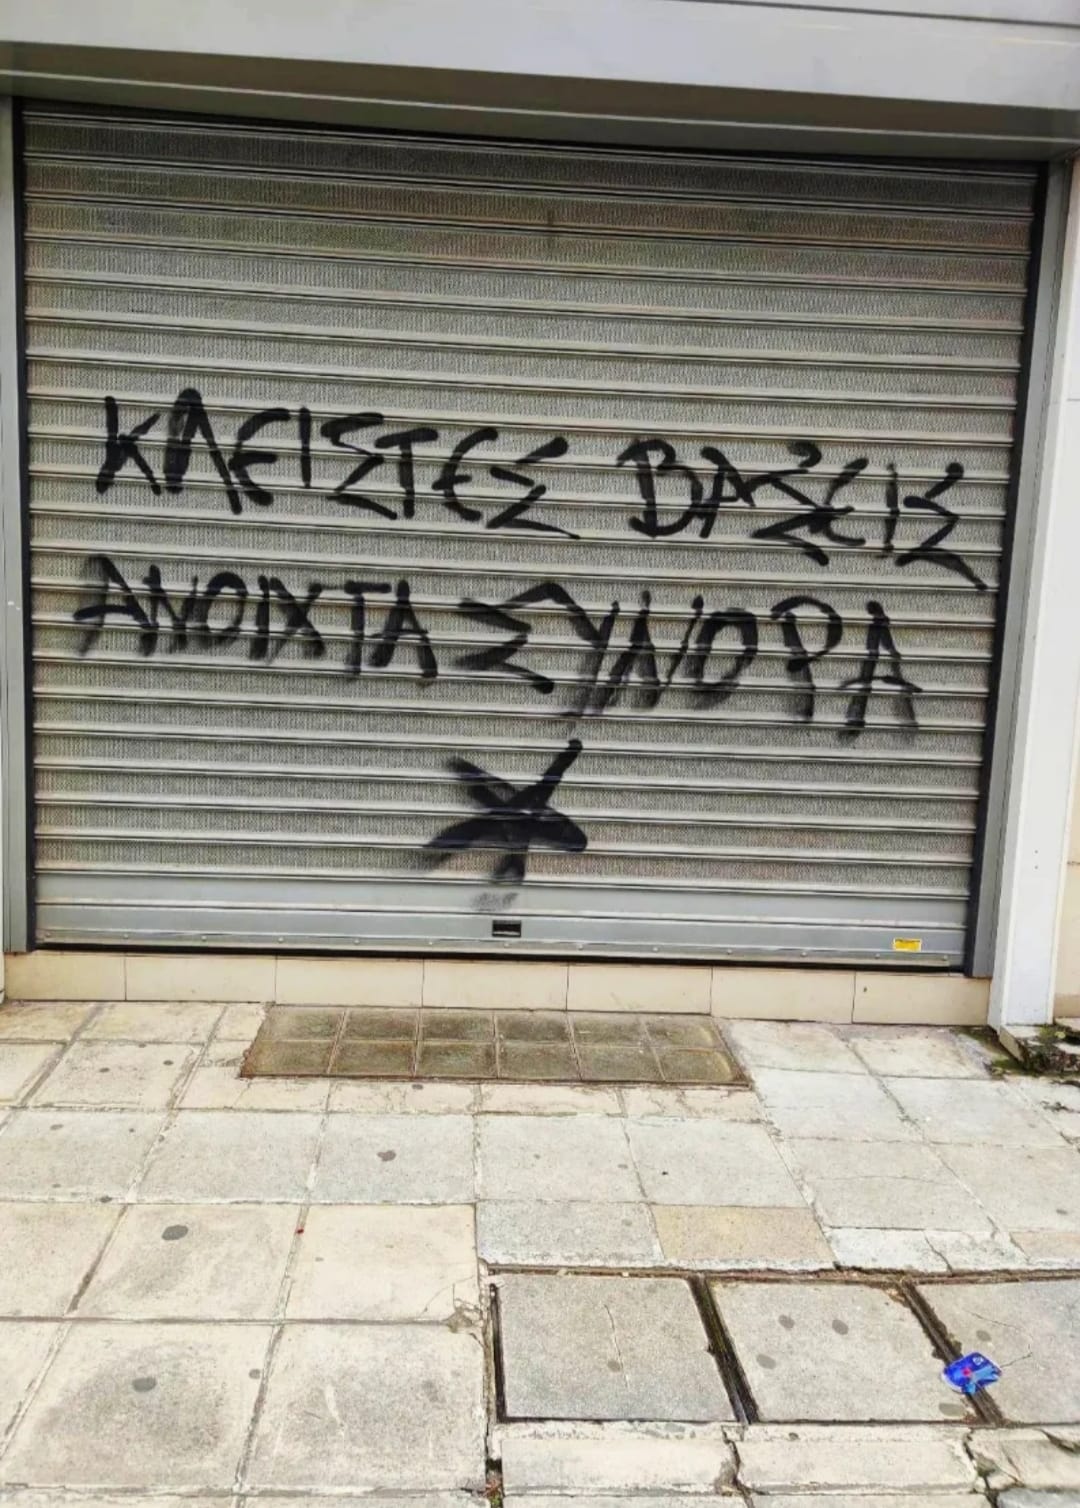 ΚΛΕΙΣΤΕΣ ΒΑΣΕΙΣ
ΑΝΟΙΧΤΑ ΣΥΝΟΡΑ